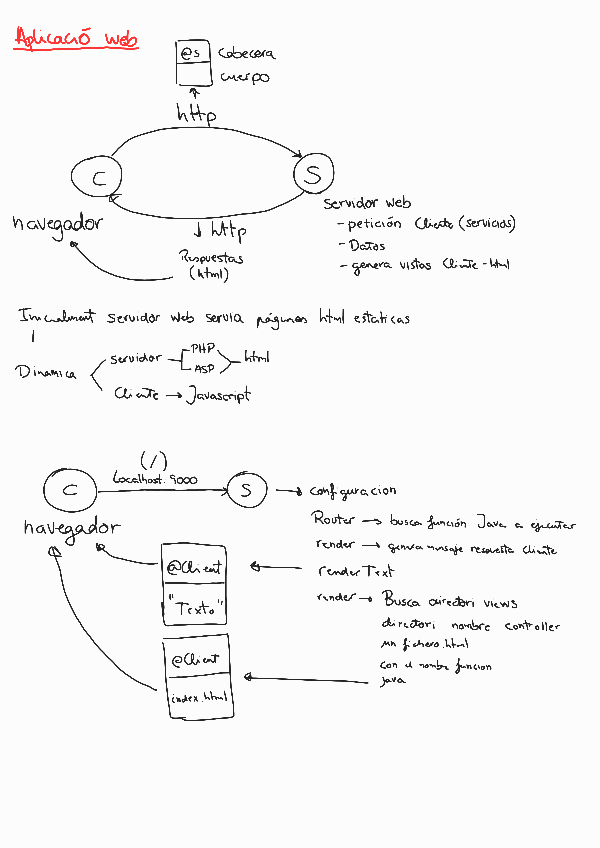 Aplicació web
@s Cabecera
cuerpo
http
C
S
navegador
http
Respuestas
(html)
Servidor web
- petición Cliente (servicios)
- Datos
- genera vistas Cliente - html
Inicialment servidor web servia páginas html estaticas
Dinamica
servidor
PHP
ASP
html
Cliente → Javascript
(/)
Localhost: 9000
C
S
→ configuracion
navegador
Router → busca función Java a ejecutar
render → genera mensaje respuesta cliente
@Client
"Texto"
render Text
render → Busca directori views
directori nombre controller
un fichero.html
con el nombre funcion
java
@Client
index.html